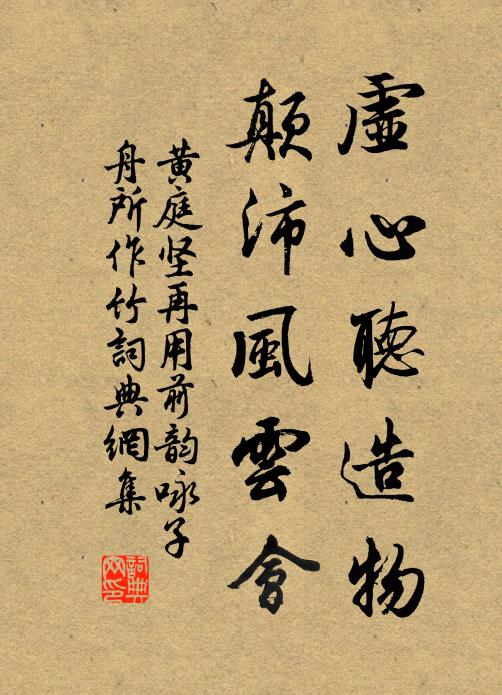 虛心聽造物
顛沛風雲會
黄庭坚再用前韵咏子
舟所作竹詞典網集
詞典网印